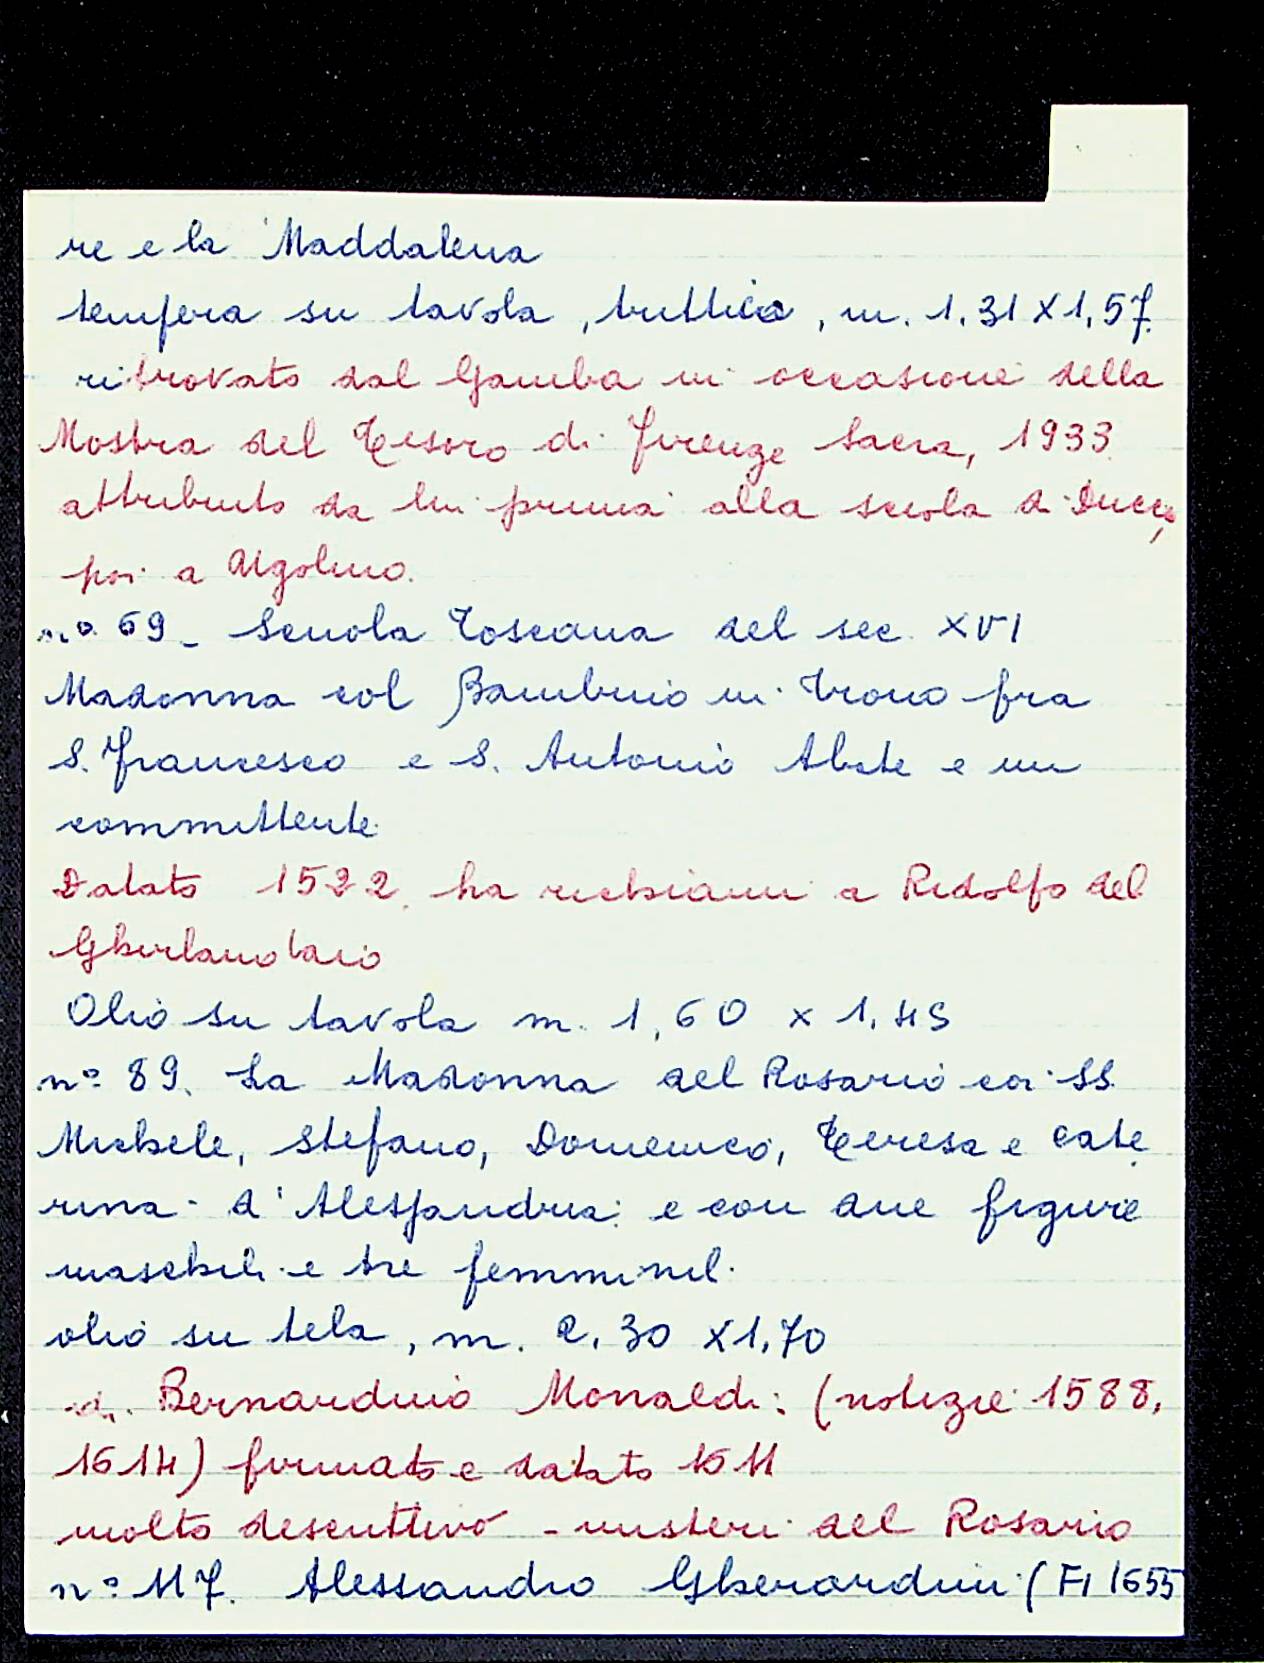 re e la Maddalena
tempera su tavola, trittico, m. 1.31 X 1,57
ritrovato dal Gamba in occasione della
Mostra del Tesoro di Firenze Sacra, 1933
attribuito da lui prima alla scuola di Duccio,
poi a Ugolino.
n.o 69 - Scuola Toscana del sec. XVI
Madonna col Bambino in trono fra
S. Francesco e S. Antonio Abate e un
committente
Datato 1522, ha richiami a Ridolfo del
Ghirlandaio
Olio su tavola m. 1,60 x 1,45
n° 89. La Madonna del Rosario coi SS.
Michele, Stefano, Domenico, Teresa e Cate
rina d'Alessandria e con due figure
maschili e tre femminili.
olio su tela, m. 2,30 X 1,70
di Bernardino Monaldi: (notizie 1588,
1614) firmato e datato 1611
molto descrittivo - misteri del Rosario
n° 117. Alessandro Gherardini (FI 1655